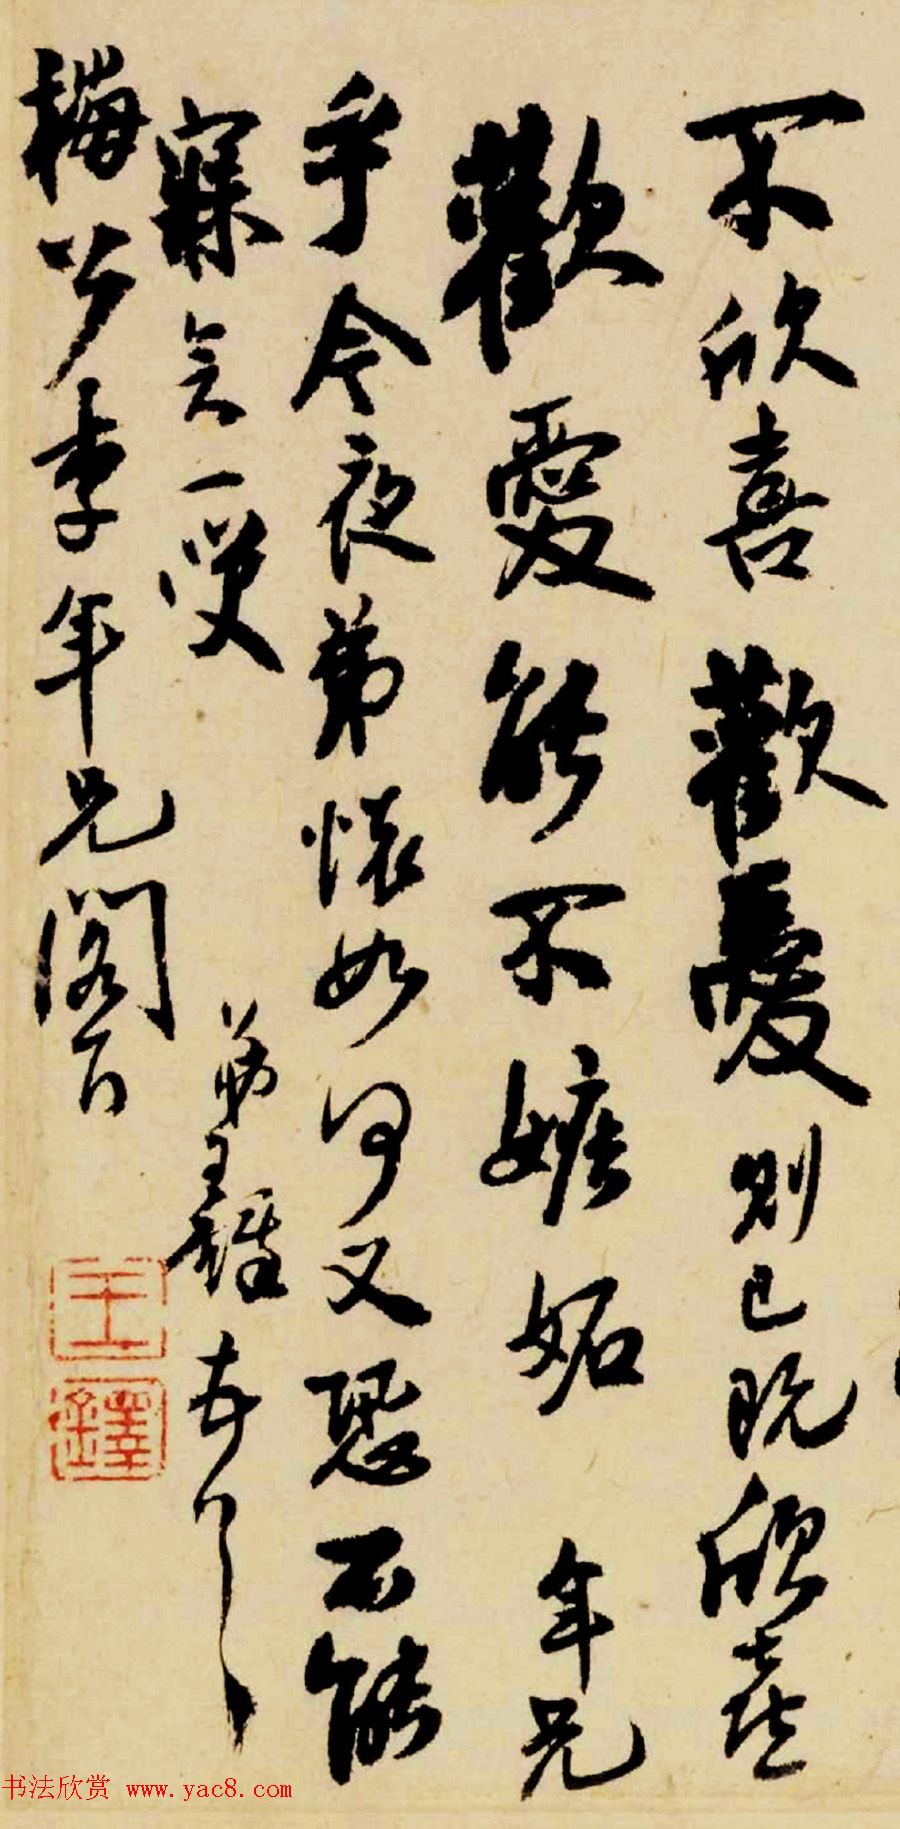 不欣喜歡愛則已既欣喜
歡愛能不嫉妬年兄
乎今夜弟懷如何又恐不能
寐矣一嘆
弟王鐸
梅公李年兄閣下
王鐸
书法欣赏 www.yac8.com